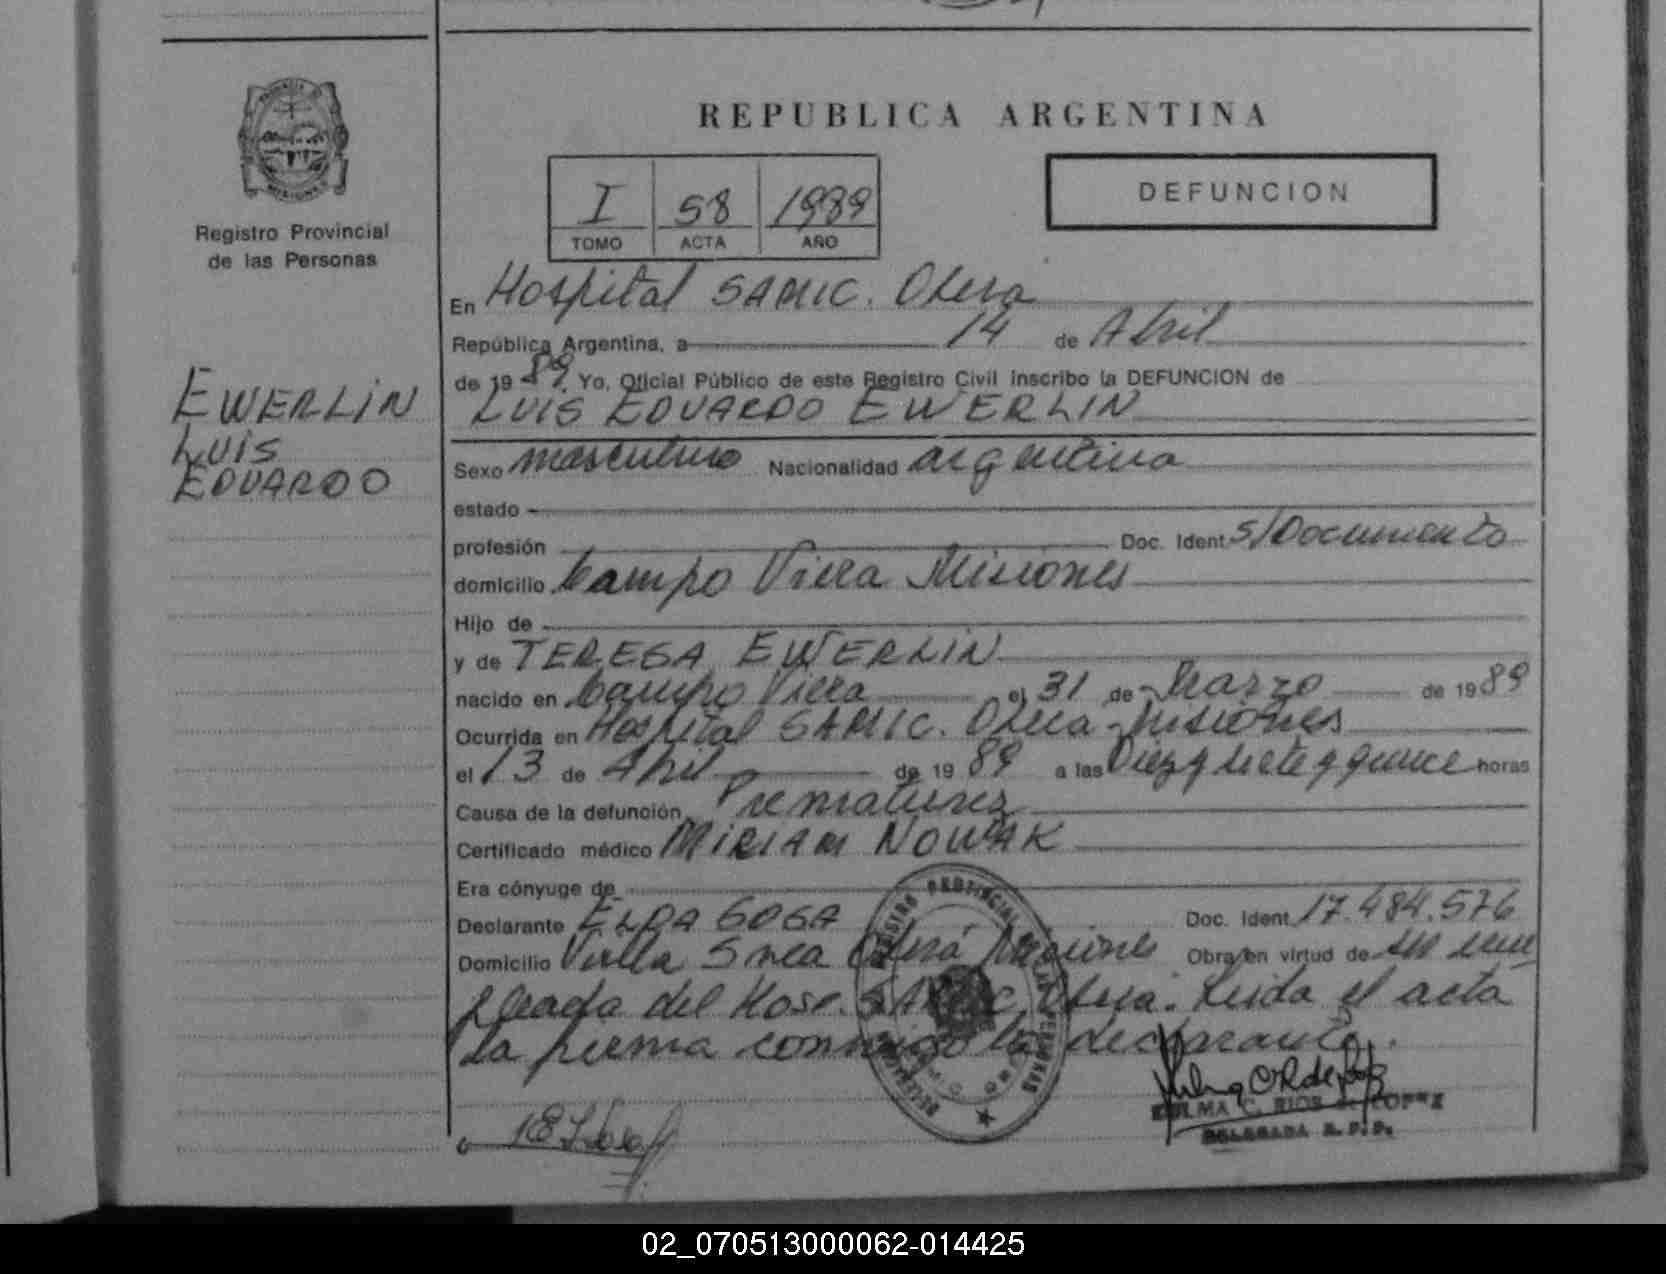 REPUBLICA ARGENTINA
I 58 1989
TOMO ACTA AÑO
DEFUNCION
Registro Provincial
de las Personas
EWERLIN
LUIS
EDUARDO
En Hospital SAMIC. Oberá
República Argentina, a 14 de Abril
de 1989. Yo, Oficial Público de este Registro Civil inscribo la DEFUNCION de
LUIS EDUARDO EWERLIN
Sexo masculino Nacionalidad argentina
estado
profesión Doc. Ident. S/Documento
domicilio Campo Viera Misiones
Hijo de
y de TERESA EWERLIN
nacido en Campo Viera el 31 de Marzo de 1989
Ocurrida en Hospital SAMIC. Oberá Misiones
el 13 de Abril de 1989 a las Diez y siete y quince horas
Causa de la defunción Prematurez
Certificado médico MIRIAM NOWAK
Era cónyuge de
Declarante ELDA SOSA Doc. Ident. 17.484.576
Domicilio Villa Oberá Misiones Obra en virtud de ser em
pleada del Hosp. SAMIC Oberá. Leida el acta
la firma conmigo la declarante.
REGISTRO PROVINCIAL DE LAS PERSONAS
ZULMA C. RIOS DE LOPEZ
DELEGADA R. P. P.
02_070513000062-014425